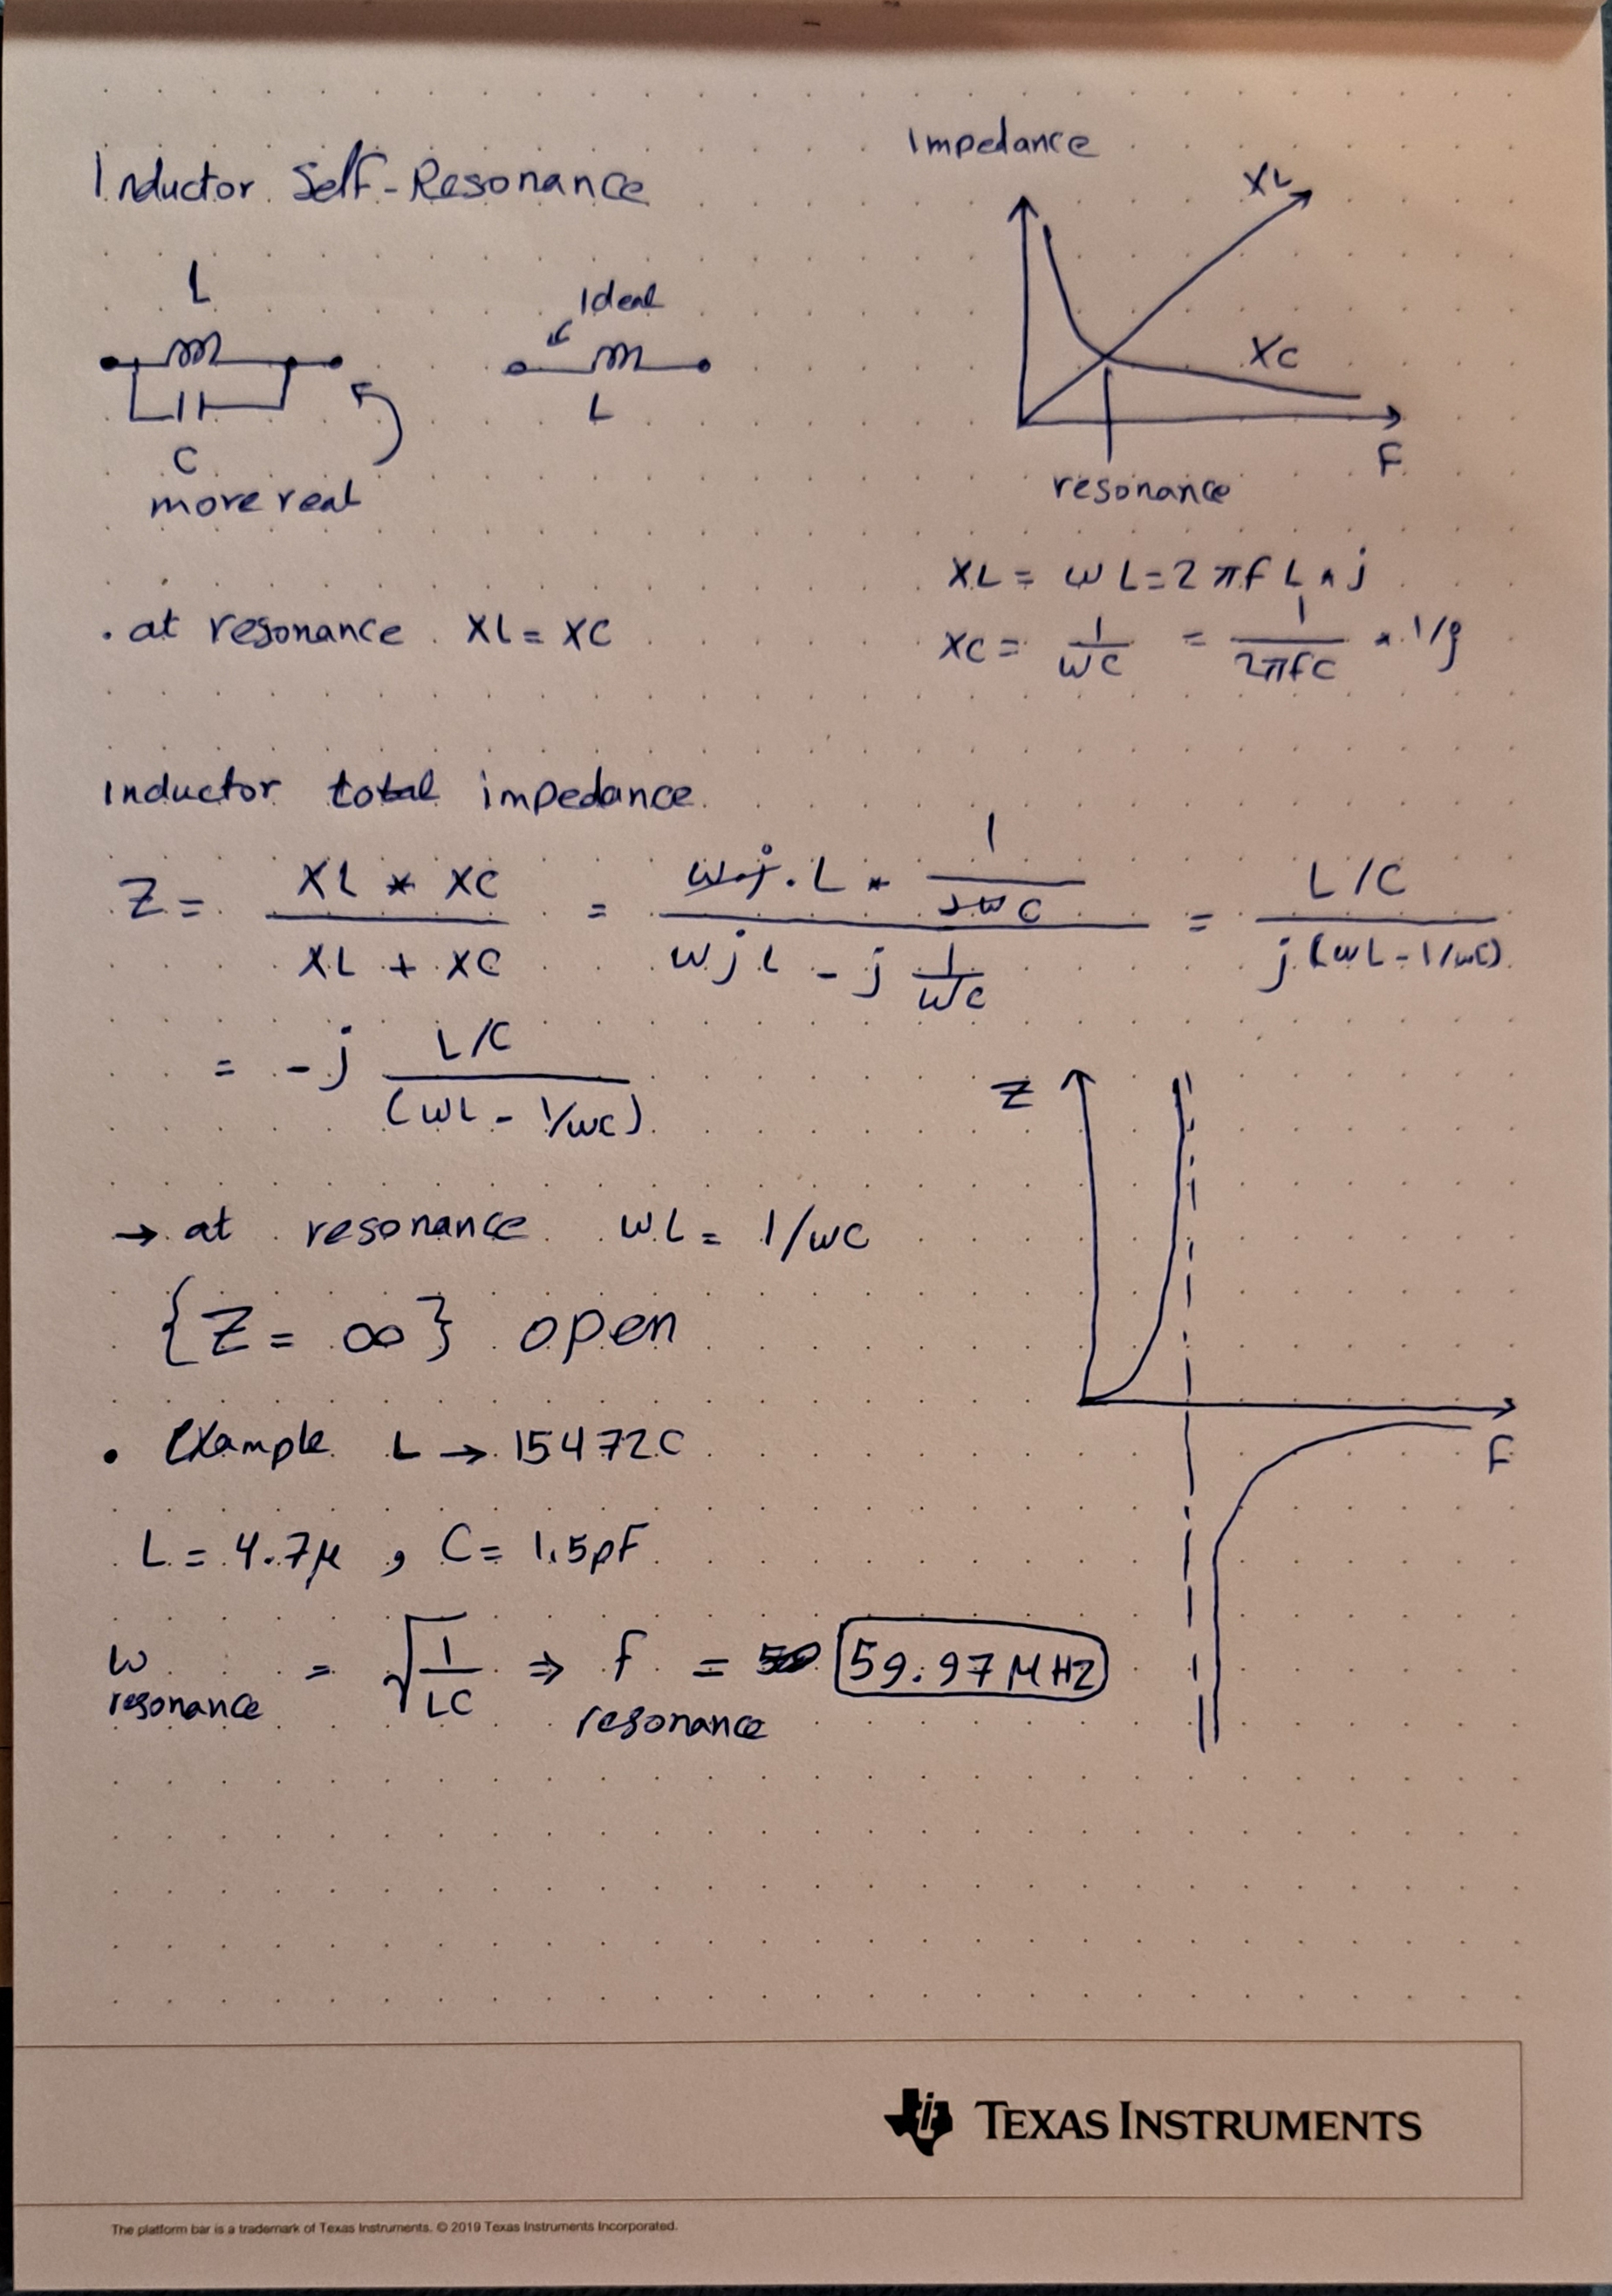 Inductor Self-Resonance
L
C
more real
Ideal
L
Impedance
XL
XC
F
resonance
XL = ωL = 2πfL * j
XC = 1/ωC = 1/2πfC * 1/j
. at resonance XL = XC
Inductor total impedance
Z = XL * XC / XL + XC = ωj.L * 1/jωC / ωjL - j 1/ωC = L/C / j(ωL - 1/ωC)
= -j L/C / (ωL - 1/ωC)
→ at resonance ωL = 1/ωC
{Z = ∞} open
Z
F
• Example L → 15472C
L = 4.7μ , C = 1.5pF
ω resonance = √1/LC ⇒ f resonance = 59.97 MHz
TEXAS INSTRUMENTS
The platform bar is a trademark of Texas Instruments. © 2019 Texas Instruments Incorporated.